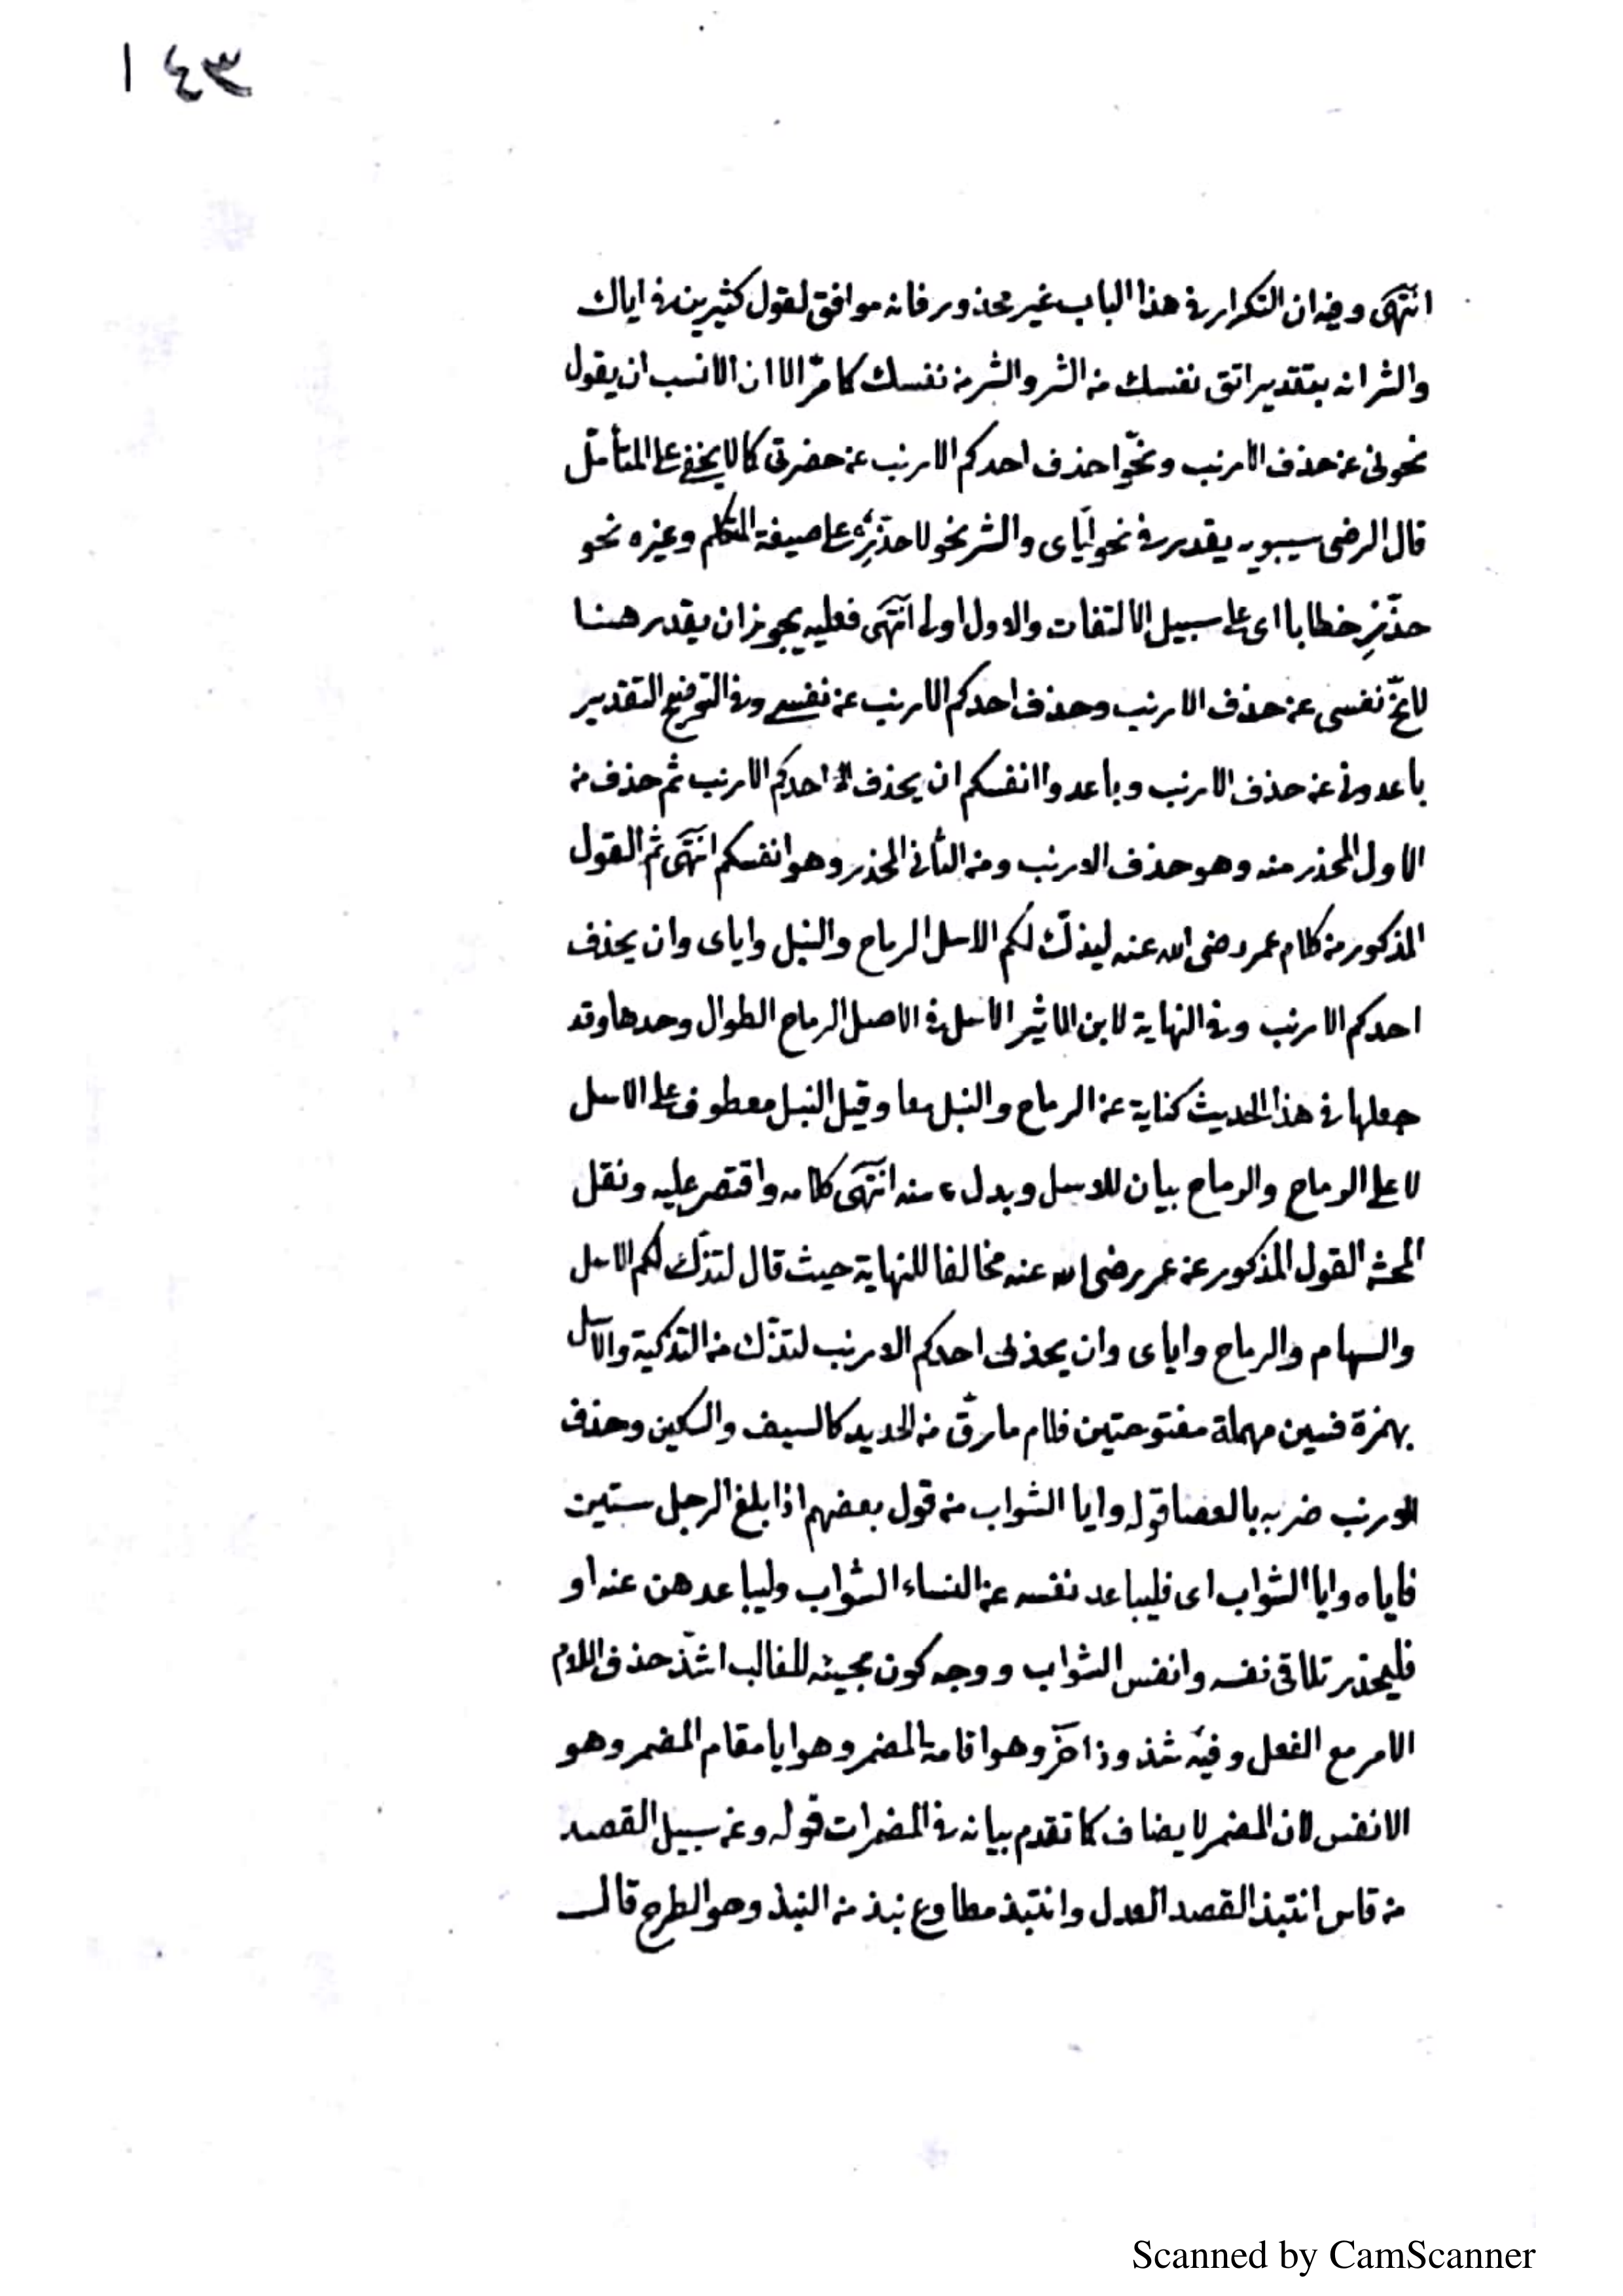 ١٤٣
انتهى وفيه ان التكرار في هذا الباب غير محذور فانه موافق لقول كثيرين في اياك
والشر انه بتقدير اتق نفسك من الشر والشر من نفسك كما مرّ الا ان الانسب ان يقول
نحوني عن حذف الارنب ونحّوا حذف احدكم الارنب عن حضرتي كما لا يخفى على المتأمّل
قال الرضي سيبويه يقدر في نحو ايّاي والشر نحو لاحذّر على صيغة المتكلم وغيره نحو
حذّر خطابا اى على سبيل الالتفات والاول اولى انتهى فعليه يجوز ان يقدر هنا
لانحّ نفسى عن حذف الارنب وحذف احدكم الارنب عن نفسى وفي التوضيح التقدير
باعدونى عن حذف الارنب وباعدوا انفسكم ان يحذف احدكم الارنب ثم حذف من
الاول المحذر منه وهو حذف الارنب ومن الثانى المحذر وهو انفسكم انتهى ثم القول
المذكور من كلام عمر رضى الله عنه ليذكّ لكم الاسل الرماح والنبل واياى وان يحذف
احدكم الارنب وفي النهاية لابن الاثير الاسل في الاصل الرماح الطوال وحدها وقد
جعلها في هذا الحديث كناية عن الرماح والنبل معا وقيل النبل معطوف على الاسل
لا على الرماح والرماح بيان للاسل وبدل منه انتهى كلامه واقتصر عليه ونقل
المحشى القول المذكور عن عمر رضى الله عنه مخالفا للنهاية حيث قال لتذكّ لكم الاسل
والسهام والرماح واياى وان يحذف احدكم الارنب لتذكّ من التذكية والاسل
بهمزة فسين مهملة مفتوحتين فلام مارقّ من الحديد كالسيف والسكين وحذف
الارنب ضربه بالعصا قوله وايا الشواب من قول بعضهم اذا بلغ الرجل ستين
فاياه وايا الشواب اى فليباعد نفسه عن النساء الشواب وليباعدهن عنه او
فليحذر تلاقى نفسه وانفس الشواب ووجه كون مجيئه للغائب اشذّ حذف اللام
الامر مع الفعل وفيه شذوذ اخر وهو اقامة المضمر وهو ايا مقام المضمر وهو
الانفس لان المضمر لا يضاف كما تقدم بيانه في المضمرات قوله وعن سبيل القصد
من قاس انتبذ القصد العدل وانتبذ مطاوع نبذ من النبذ وهو الطرح قال
Scanned by CamScanner